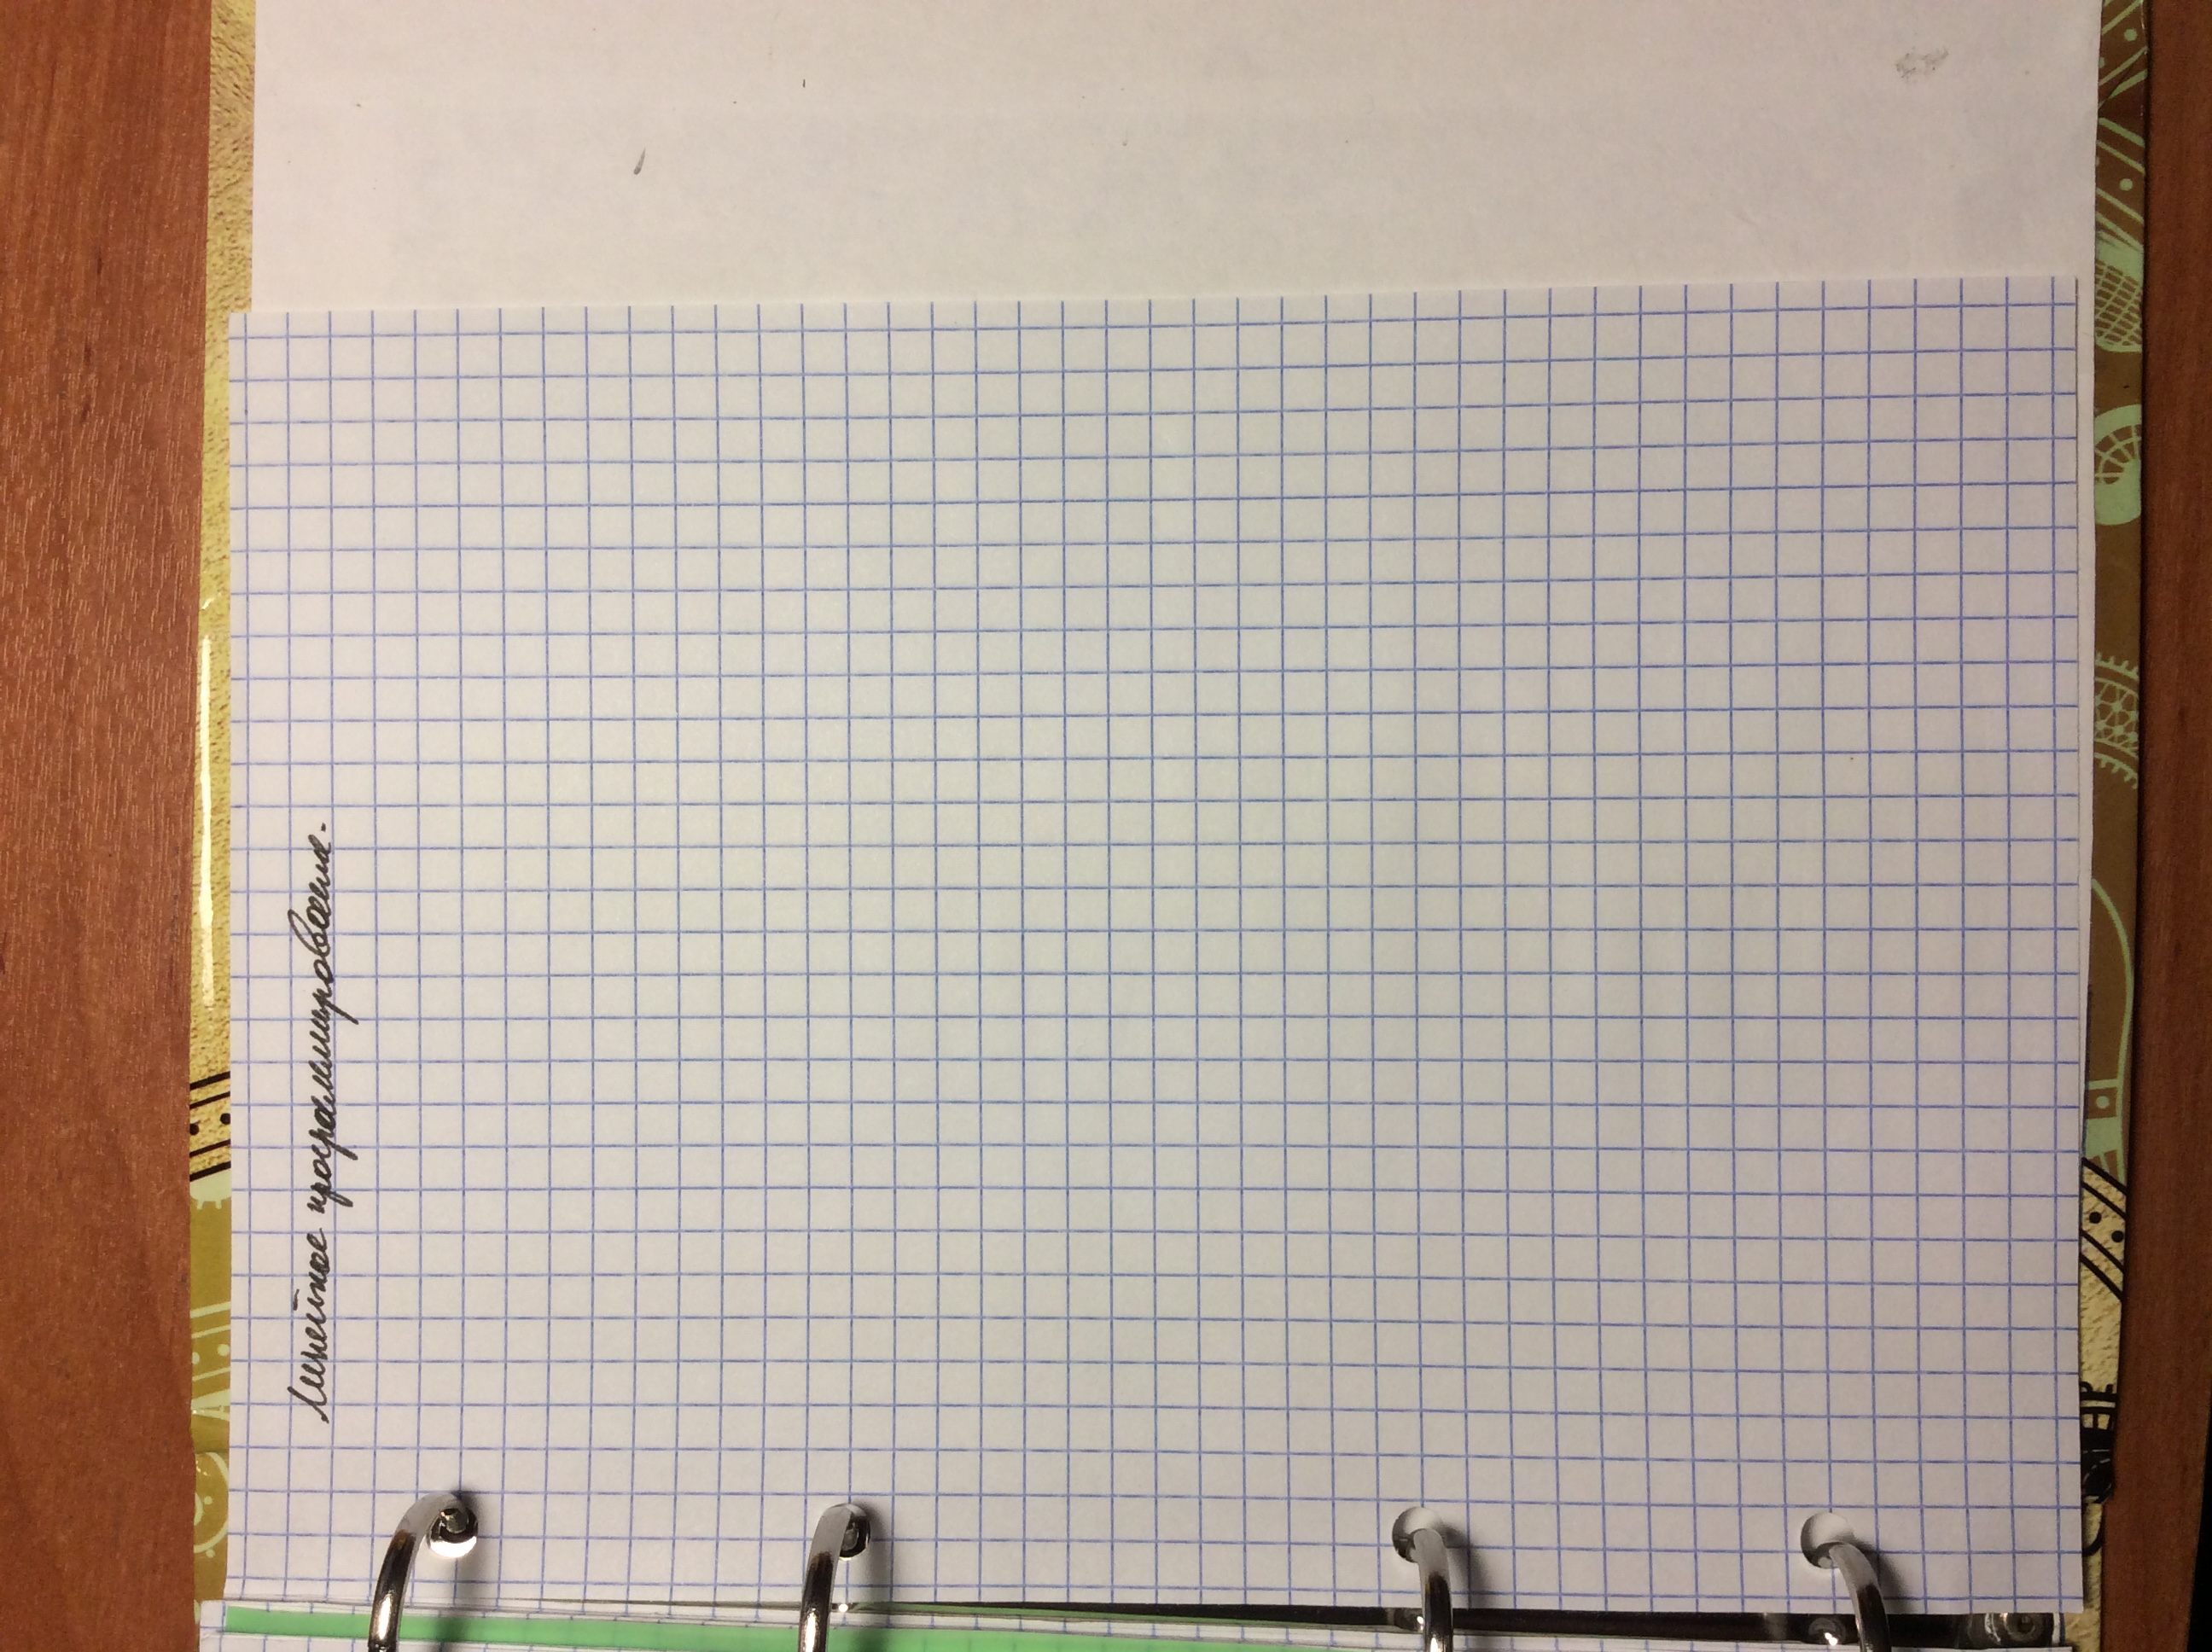 Линейное программирование.